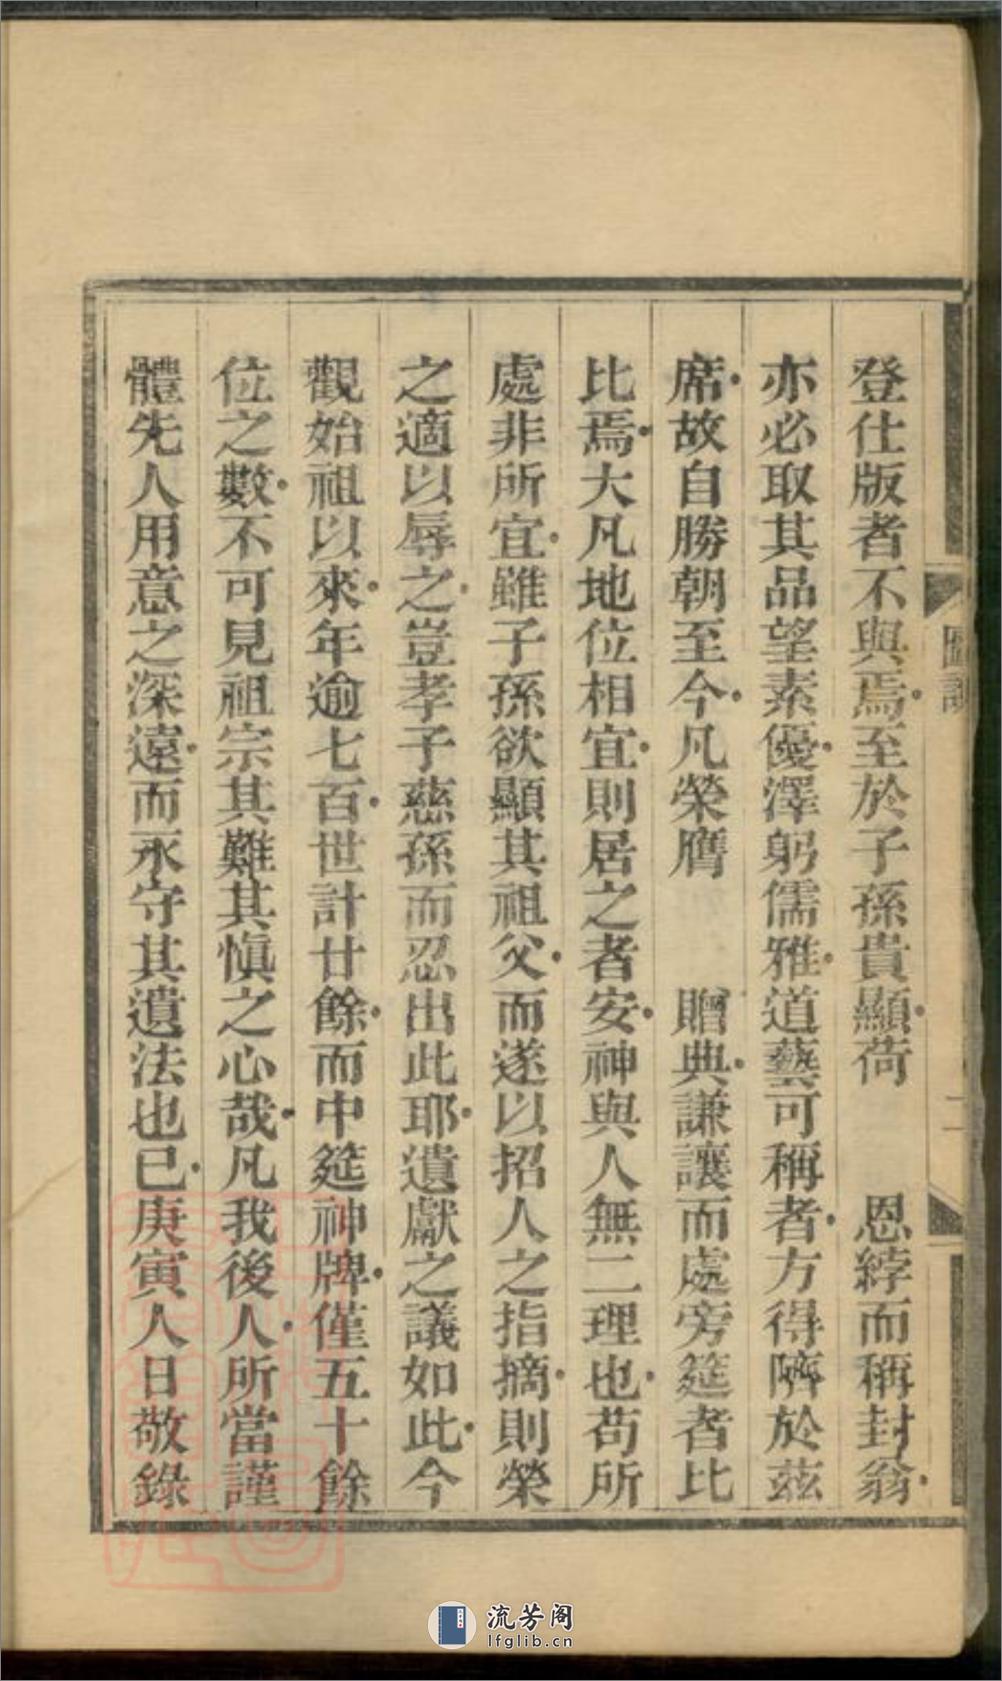 登仕版者不與焉至於子孫貴顯荷　恩綍而稱封翁
亦必取其品望素優澤躬儒雅道藝可稱者方得隮於茲
席故自勝朝至今凡榮膺　贈典謙讓而處旁筵者比
比焉大凡地位相宜則居之者安神與人無二理也苟所
處非所宜雖子孫欲顯其祖父而遂以招人之指摘則榮
之適以辱之豈孝子慈孫而忍出此耶遺獻之議如此今
觀始祖以來年逾七百世計廿餘而中筵神牌僅五十餘
位之數不可見祖宗其難其慎之心哉凡我後人所當謹
體先人用意之深遠而永守其遺法也已庚寅人日敬錄
二
流芳阁
lfglib.cn